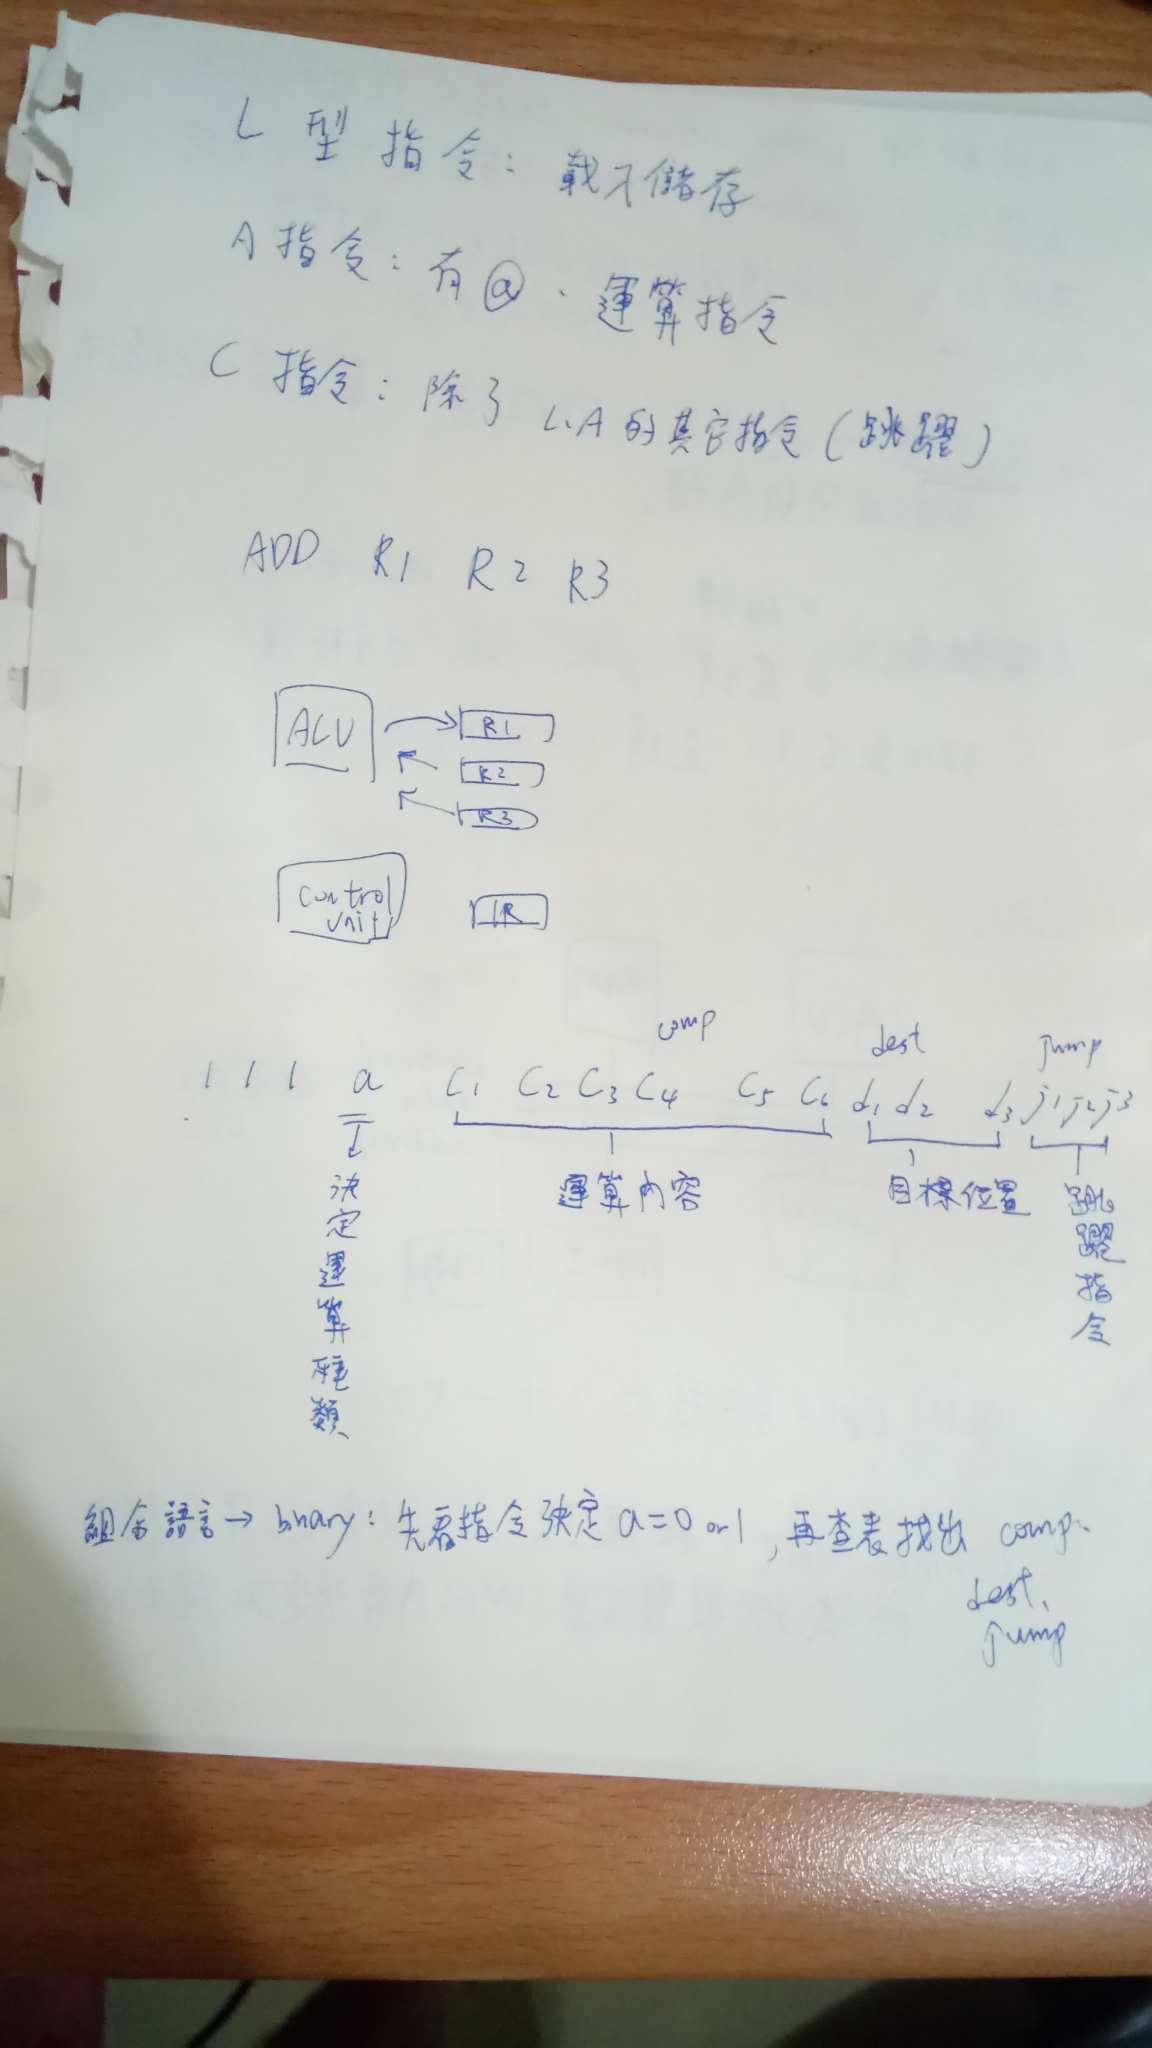 L 型指令：載入儲存
A 指令：有@、運算指令
C 指令：除了 L、A 的其它指令(跳躍)
ADD R1 R2 R3
ALU R1
R2
R3
control unit IR
comp dest jump
1 1 1 a C1 C2 C3 C4 C5 C6 d1 d2 d3 j1 j2 j3
決定運算種類
運算內容
目標位置
跳躍指令
組合語言→binary：先看指令決定 a=0 or 1，再查表找出 comp、
dest、
jump